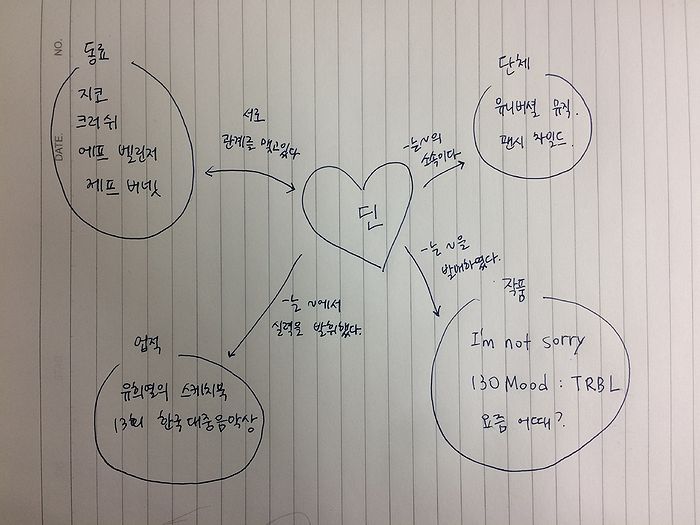 NO.
DATE.
동료
지코
크러쉬
에프 벨린저
제프 버넷
서로
관계를 맺고있다
단체
유니버셜 뮤직.
팬시 차일드.
-는~의
소속이다
딘
-는 ~을
발매하였다.
작품
I'm not sorry
130 Mood : TRBL
요즘 어때?
-는 ~에서
실력을 발휘했다.
업적
유희열의 스케치북
13회 한국대중음악상